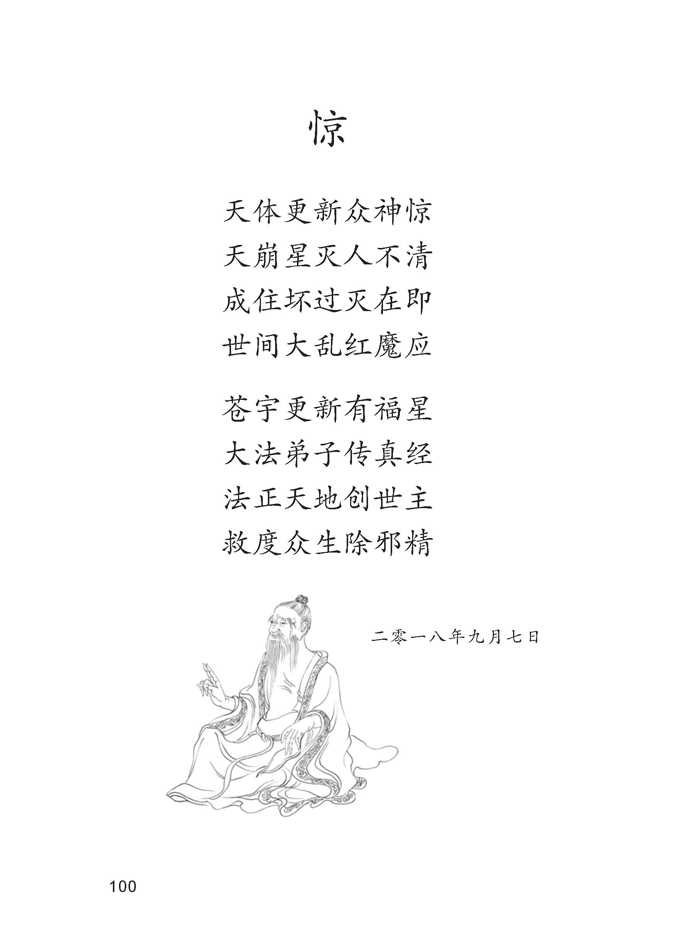 惊
天体更新众神惊
天崩星灭人不清
成住坏过灭在即
世间大乱红魔应
苍宇更新有福星
大法弟子传真经
法正天地创世主
救度众生除邪精
二零一八年九月七日
100